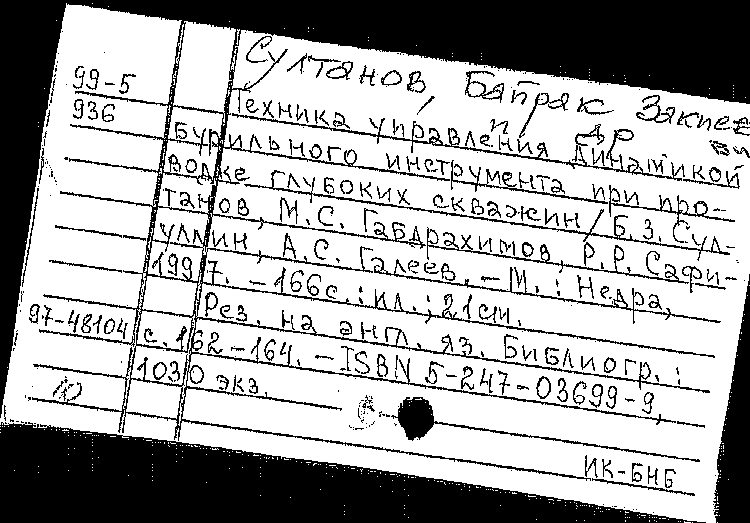 Султанов, Байрак Закиев
99-5
936
и др
вич
Техника управления динамикой
бурильного инструмента при про-
водке глубоких скважин / Б.З. Сул-
танов, М.С. Габдрахимов, Р.Р. Сафи-
уллин, А.С. Галеев. – М. : Недра,
1997. – 166с. : ил. ; 21см.
Рез. на англ. яз. Библиогр. :
97-48104
с. 162-164. – ISBN 5-247-03699-9,
1030 экз.
10
ИК-БНБ